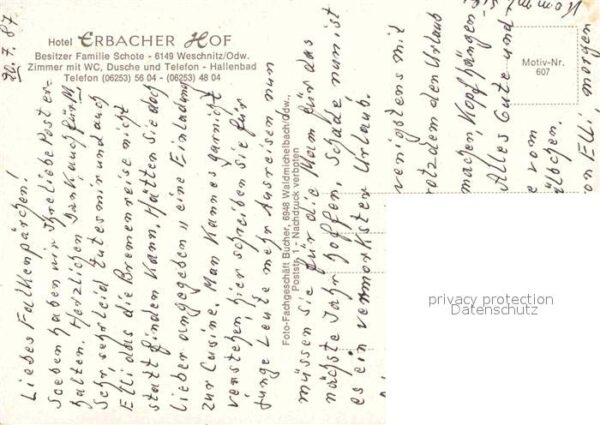 Hotel ERBACHER HOF
Besitzer Familie Schote - 6149 Weschnitz/Odw.
Zimmer mit WC, Dusche und Telefon - Hallenbad
Telefon (06253) 56 04 - (06253) 48 04
Motiv-Nr.
607
Foto-Fachgeschäft Bucher, 6948 Waldmichelbach/Odw.,
Poststr. 1 - Nachdruck verboten
20.7.87
Liebes Falkenpärchen!
Soeben haben wir Ihre liebe Post er-
halten. Herzlichen Dank auch für
Sehr, sehr leid tut es mir und auch
Elli das die Bremenreise nicht
statt finden kann. Hätten Sie doch
lieber angegeben "eine Einladung
zur Cusine. Man kann es gar nicht
verstehen, hier schreiben Sie für
junge Leute mehr Ausreisen nun
müssen Sie für die Mam für das
nächste Jahr hoffen. Schade nun ist
es ein vermorksten Urlaub.
wenigstens mit
trotzdem den Urlaub
machen, Kopf hängen
Alles Gute und
e vom
älbchen.
von Elli, morgen
Komm
privacy protection
Datenschutz